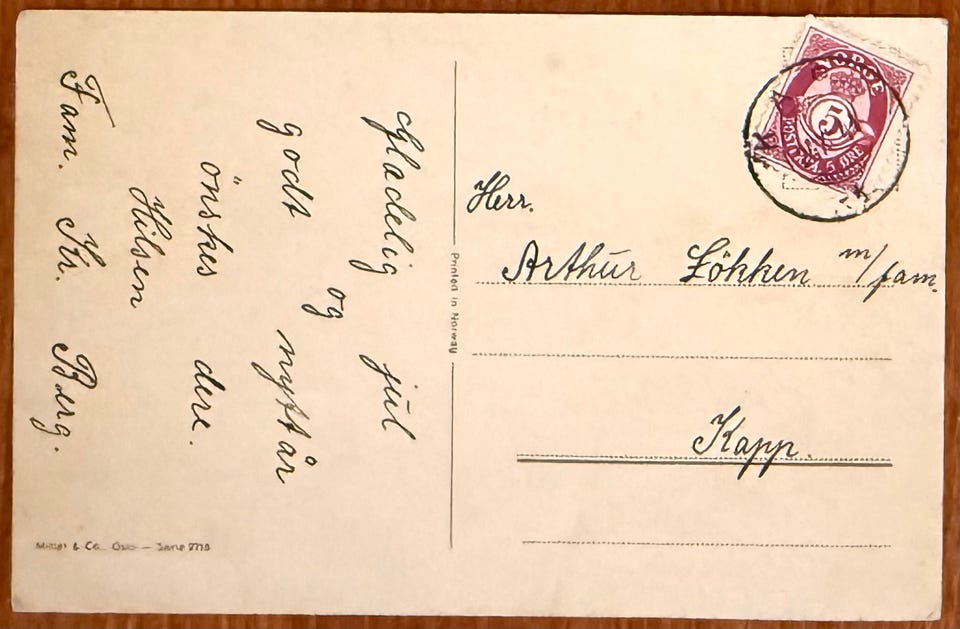 Gladelig jul
og
godt nyttår
önskes dere.
Hilsen
Fam. Kr. Berg.
& Co. Oslo — Serie
Printed in Norway
NORGE
5
POSTFRIM 5 ØRE
KAPP
Herr.
Arthur Lökken m/fam.
Kapp.